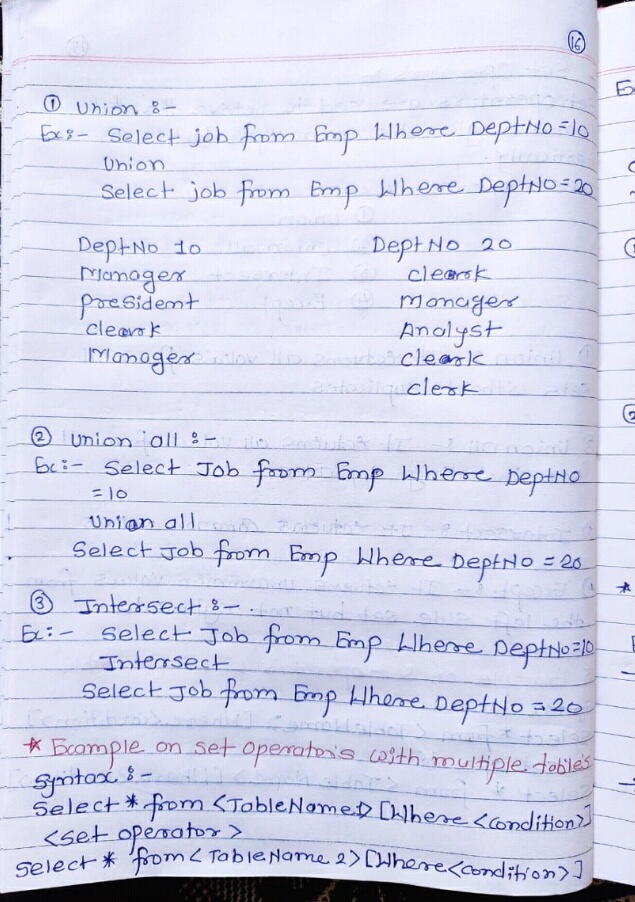 16
① Union :-
Ex:- Select job from Emp Where DeptNO=10
Union
Select job from Emp Where DeptNO=20
DeptNo 10 DeptNo 20
Manager clerk
president Manager
clerk Analyst
Manager clerk
clerk
② Union all :-
Ex:- Select Job from Emp Where DeptNO
=10
Union all
Select Job from Emp Where DeptNo = 20
③ Intersect :-
Ex:- Select Job from Emp Where DeptNo=10
Intersect
Select Job from Emp Where DeptNo = 20
* Example on set operator's with multiple table's
syntax :-
Select * from <TableName1> [Where <condition>]
<set operator>
Select * from < TableName 2> [Where<condition>]